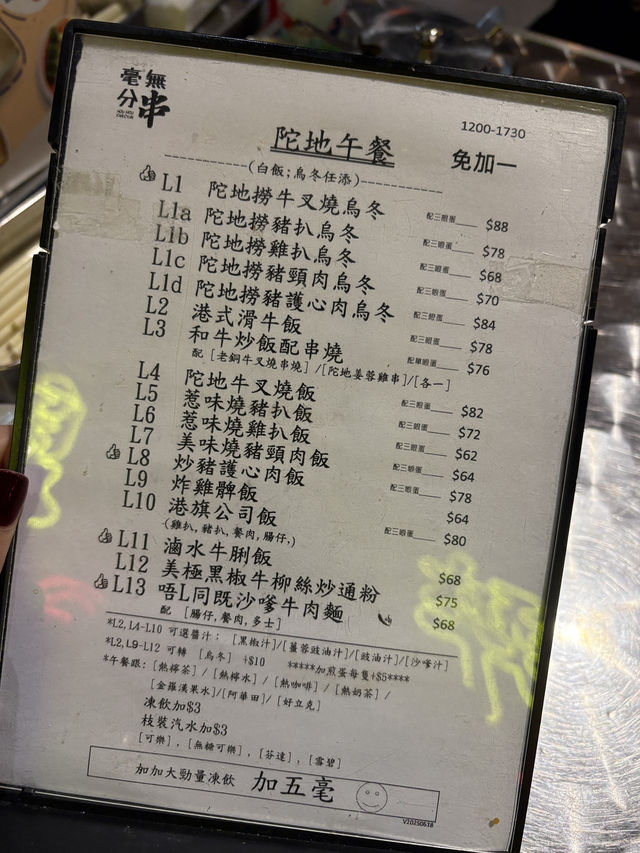 毫無
分串
1200-1730
陀地午餐
免加一
(白飯;烏冬任添)
L1 陀地撈牛叉燒烏冬 配三眼蛋 $88
L1a 陀地撈豬扒烏冬 配三眼蛋 $78
L1b 陀地撈雞扒烏冬 配三眼蛋 $68
L1c 陀地撈豬頸肉烏冬 配三眼蛋 $70
L1d 陀地撈豬護心肉烏冬 配三眼蛋 $84
L2 港式滑牛飯 配三眼蛋 $78
L3 和牛炒飯配串燒 配單眼蛋 $76
配 [老銅牛叉燒串燒] /[陀地姜蓉雞串]/[各一]
L4 陀地牛叉燒飯 配三眼蛋 $82
L5 惹味燒豬扒飯 配三眼蛋 $72
L6 惹味燒雞扒飯 配三眼蛋 $62
L7 美味燒豬頸肉飯 配三眼蛋 $64
L8 炒豬護心肉飯 配三眼蛋 $78
L9 炸雞髀飯 $64
L10 港旗公司飯 配三眼蛋 $80
(雞扒, 豬扒, 餐肉, 腸仔,)
L11 滷水牛脷飯 $68
L12 美極黑椒牛柳絲炒通粉 $75
L13 唔L同既沙嗲牛肉麵 $68
配 [腸仔, 餐肉, 多士]
*L2, L4-L10 可選醬汁： [黑椒汁]/[薑蓉豉油汁]/[豉油汁]/[沙嗲汁]
*L2, L9-L12 可轉 [烏冬] +$10 *****加煎蛋每隻+$5****
*午餐跟: [熱檸茶] / [熱檸水] / [熱咖啡] / [熱奶茶] /
[金羅漢果水]/[阿華田]/ [好立克]
凍飲加$3
枝裝汽水加$3
[可樂] , [無糖可樂] , [芬達] , [雪碧]
加加大勁量凍飲 加五毫
V20250618